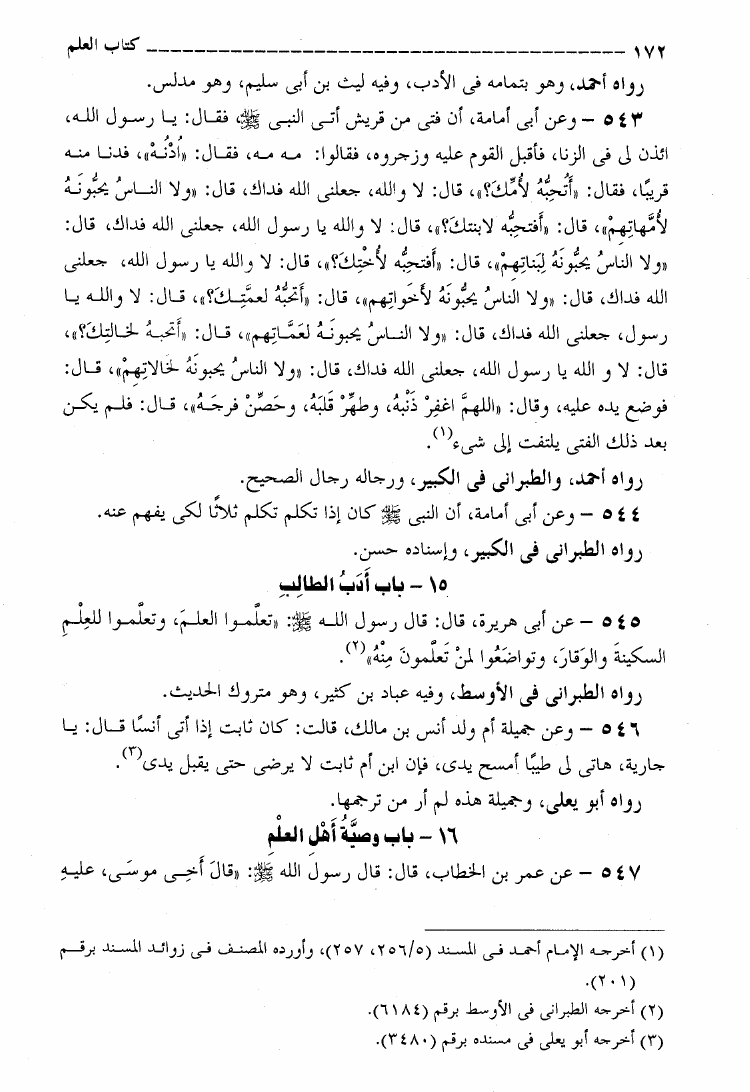 ١٧٢ ــــــــــــــــــــــــــــــــــــــــــــــــــــــــــــ كتاب العلم
رواه أحمد، وهو بتمامه فى الأدب، وفيه ليث بن أبى سليم، وهو مدلس.
٥٤٣ – وعن أبى أمامة، أن فتى من قريش أتـى النبـى ﷺ، فقـال: يـا رسـول اللـه،
ائذن لى فى الزنا، فأقبل القوم عليه وزجروه، فقالوا: مـه مـه، فقـال: «أُدْنُـهْ»، فدنـا منـه
قريبًا، فقال: «أَتُحِبُّهُ لأُمِّكَ؟»، قال: لا والله، جعلنى الله فداك، قال: «ولا النـاسُ يُحبُّونَـهُ
لأُمَّهاتِهِمْ»، قال: «أَفتحبُّه لابنتكَ؟»، قال: لا والله يا رسول الله، جعلنى الله فداك، قال:
«ولا الناسُ يحبُّونَهُ لِبَناتِهِمْ»، قال: «أَفتحبُّه لأُخْتِكَ؟»، قال: لا والله يا رسول الله، جعلنى
الله فداك، قال: «ولا الناسُ يحبُّونَهُ لأَخَواتِهِم»، قال: «أَتحبُّهُ لعمَّتِـكَ؟»، قـال: لا واللـه يـا
رسول، جعلنى الله فداك، قال: «ولا النـاسُ يحبونَـهُ لعَمَّـاتِهم»، قـال: «أَتحبـهُ لخـالتِكَ؟»،
قال: لا و الله يا رسول الله، جعلنى الله فداك، قال: «ولا الناسُ يحبونَهُ لخَالاتِهِمْ»، قـال:
فوضع يده عليه، وقال: «اللهمَّ اغفِرْ ذَنْبهُ، وطهِّرْ قلبَهُ، وحَصِّنْ فرجَـهُ»، قـال: فلـم يكـن
بعد ذلك الفتى يلتفت إلى شىء(١).
رواه أحمد، والطبرانى فى الكبير، ورجاله رجال الصحيح.
٥٤٤ – وعن أبى أمامة، أن النبى ﷺ كان إذا تكلم تكلم ثلاثًا لكى يفهم عنه.
رواه الطبرانى فى الكبير، وإسناده حسن.
١٥ – باب أَدَبُ الطالِبِ
٥٤٥ – عن أبى هريرة، قال: قال رسول اللـه ﷺ: «تعلَّمـوا العلـمَ، وتعلَّمـوا للعِلْـمِ
السكينةَ والوَقارَ، وتواضَعُوا لمنْ تَعلَّمونَ مِنْهُ»(٢).
رواه الطبرانى فى الأوسط، وفيه عباد بن كثير، وهو متروك الحديث.
٥٤٦ – وعن جميلة أم ولد أنس بن مالك، قالت: كان ثابت إذا أتى أنسًا قـال: يـا
جارية، هاتى لى طيبًا أمسح يدى، فإن ابن أم ثابت لا يرضى حتى يقبل يدى(٣).
رواه أبو يعلى، وجميلة هذه لم أر من ترجمها.
١٦ – باب وصيَّةُ أَهْلِ العلْمِ
٥٤٧ – عن عمر بن الخطاب، قال: قال رسول الله ﷺ: «قالَ أَخِـى موسَى، عليـهِ
(١) أخرجـه الإمـام أحمـد فـى المسـند (٢٥٦/٥، ٢٥٧)، وأورده المصنـف فـى زوائـد المسـند برقـم
(٢٠١).
(٢) أخرجه الطبرانى فى الأوسط برقم (٦١٨٤).
(٣) أخرجه أبو يعلى فى مسنده برقم (٣٤٨٠).